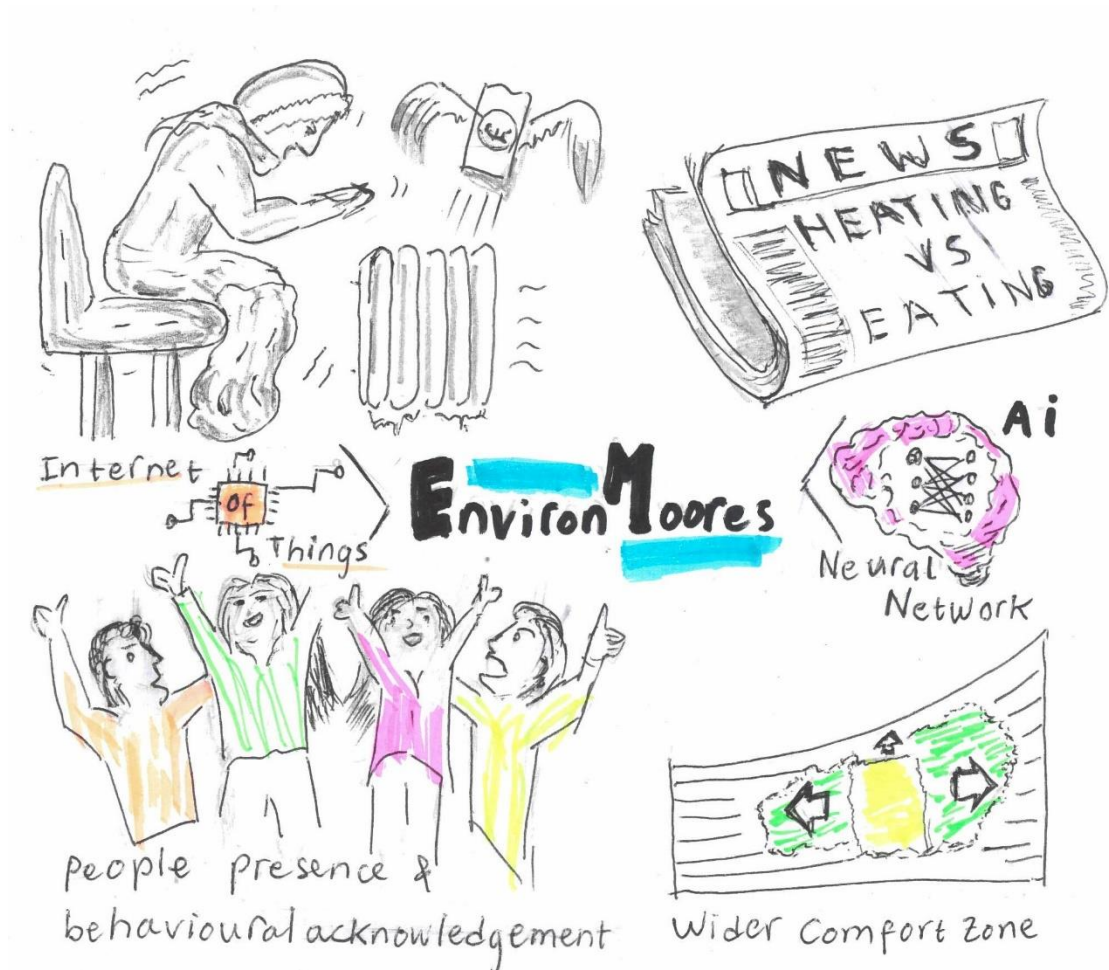 NEWS
HEATING
VS
EATING
Internet
Of
Things
EnvironMoores
Ai
Neural
Network
people presence &
behavioural acknowledgement
Wider Comfort Zone